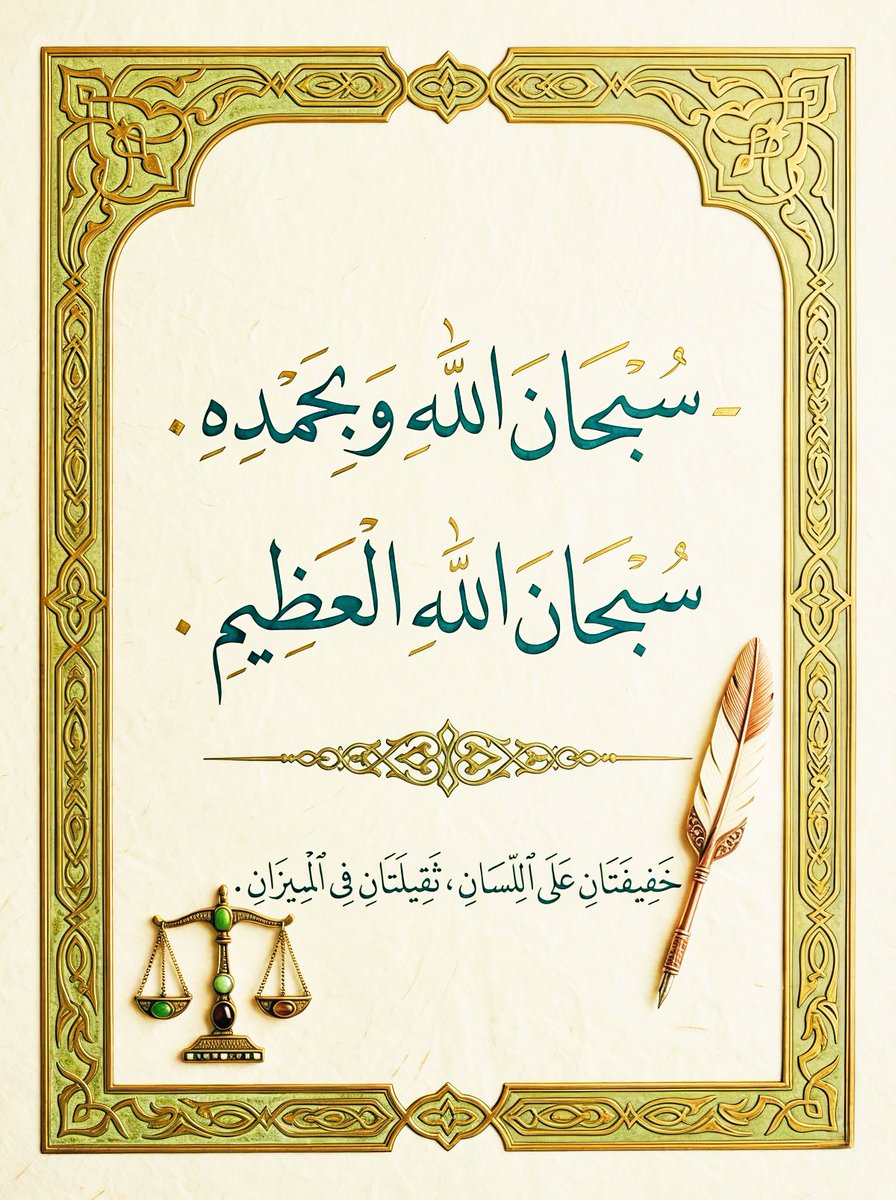 - سُبْحَانَ اللَّهِ وَبِحَمْدِهِ .
سُبْحَانَ اللَّهِ الْعَظِيمِ .
خَفِيفَتَانِ عَلَى ٱللِّسَانِ ، ثَقِيلَتَانِ فِي ٱلْمِيزَانِ .